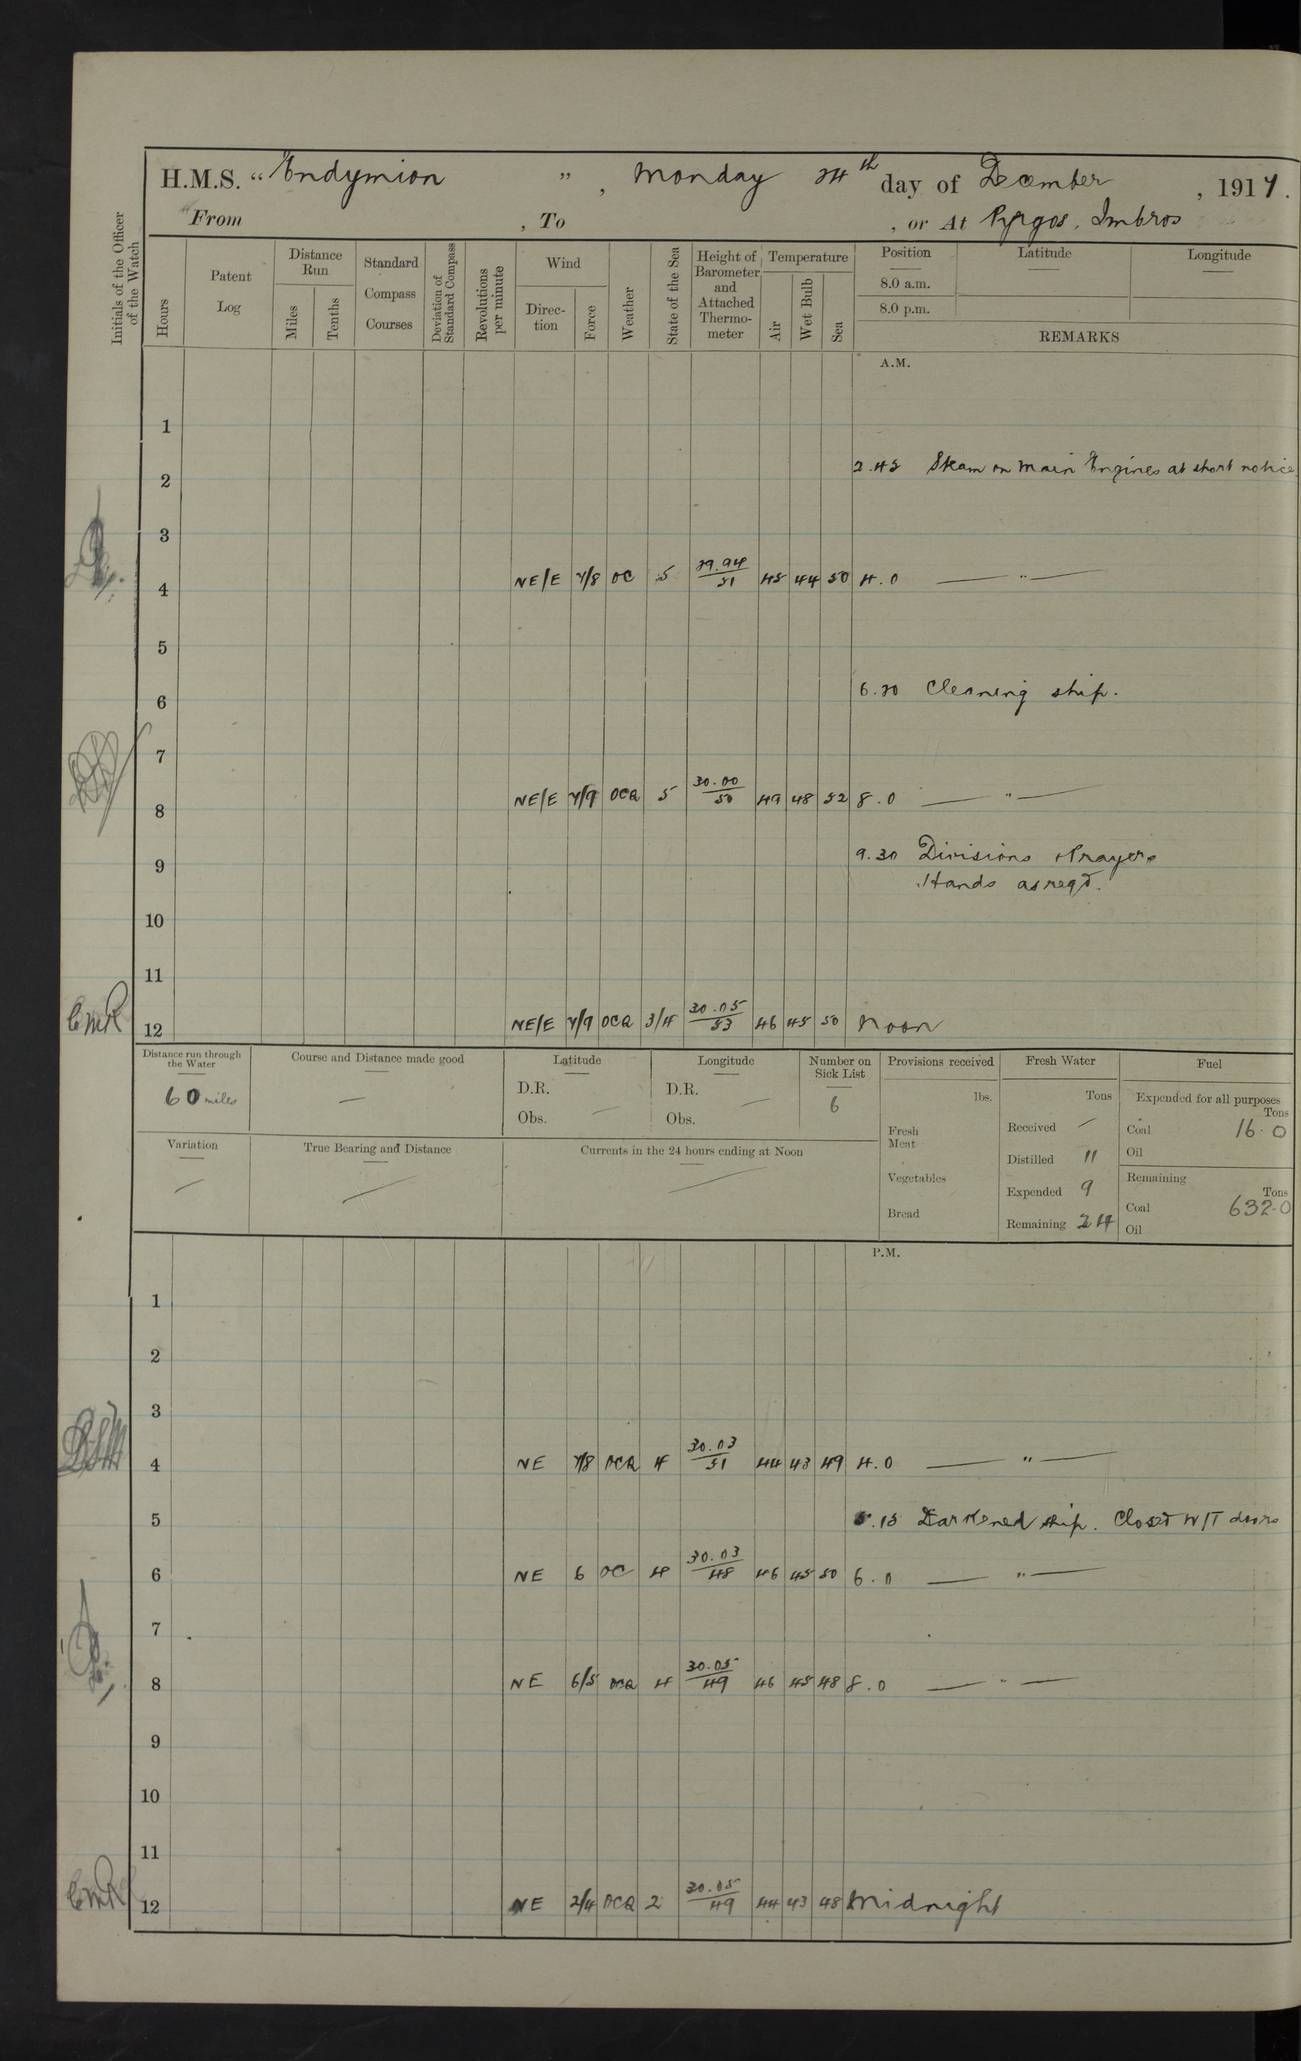 H.M.S. “ Endymion ” , Monday 24th day of December , 1917 .
From , To , or At Pyrgos, Imbros
Initials of the Officer of the Watch
Hours
Patent Log
Distance Run
Miles
Tenths
Standard Compass Courses
Deviation of Standard Compass
Revolutions per minute
Wind
Direction
Force
Weather
State of the Sea
Height of Barometer and Attached Thermometer
Temperature
Air
Wet Bulb
Sea
Position
8.0 a.m.
8.0 p.m.
Latitude
Longitude
REMARKS
A.M.
1
2.45 Steam on main Engines at short notice
2
3
4 NE/E 7/8 OC 5 29.94/51 45 44 50 4.0 — " —
5
6.20 Cleaning ship.
6
7
8 NE/E 7/9 OCQ 5 30.00/50 49 48 52 8.0 — " —
9 9.30 Divisions & Prayers
Hands as reqd.
10
11
CMR 12 NE/E 7/9 OCQ 3/4 30.05/53 46 45 50 Noon
Distance run through the Water
60 miles
Course and Distance made good
—
Latitude
D.R.
Obs. —
Longitude
D.R. —
Obs.
Number on Sick List
6
Provisions received
lbs.
Fresh Meat
Vegetables
Bread
Fresh Water
Tons
Received —
Distilled 11
Expended 9
Remaining 24
Fuel
Expended for all purposes
Tons
Coal 16.0
Oil
Remaining
Tons
Coal 632.0
Oil
Variation
—
True Bearing and Distance
—
Currents in the 24 hours ending at Noon
—
P.M.
1
2
3
4 NE 7/8 OCQ 4 30.03/51 44 43 49 4.0 — " —
5 5.15 Darkened ship. Closed W/T doors
6 NE 6 OC 4 30.03/48 46 45 50 6.0 — " —
7
8 NE 6/5 OCQ 4 30.05/49 46 45 48 8.0 — " —
9
10
11
CMR 12 NE 2/4 OCQ 2 30.05/49 44 43 48 Midnight